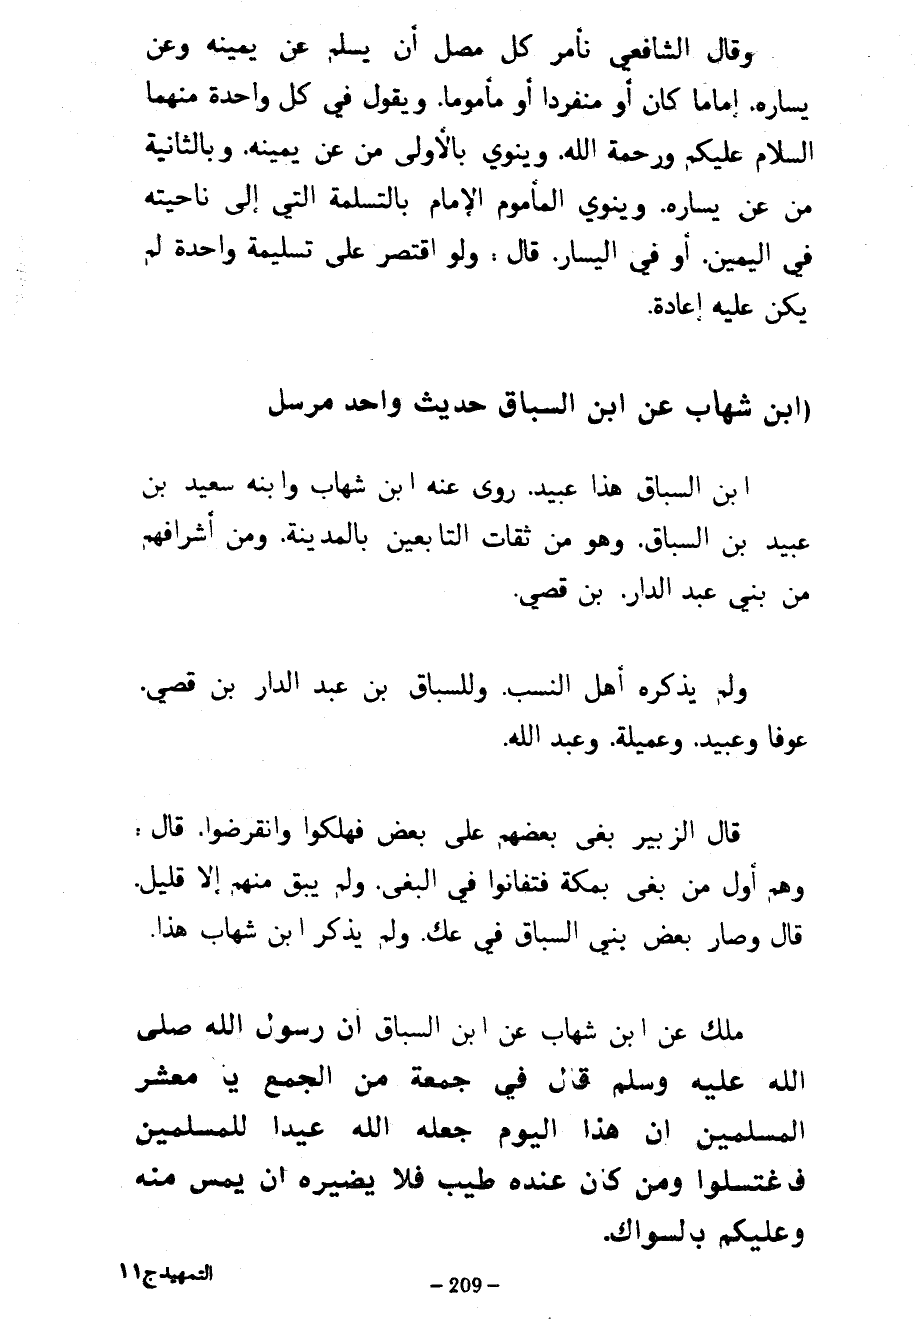 وقال الشافعي نأمر كل مصل أن يسلم عن يمينه وعن
يساره. إماما كان أو منفردا أو مأموما. ويقول في كل واحدة منهما
السلام عليكم ورحمة الله. وينوي بالأولى من عن يمينه. وبالثانية
من عن يساره. وينوي المأموم الإمام بالتسلمة التي إلى ناحيته
في اليمين. أو في اليسار. قال : ولو اقتصر على تسليمة واحدة لم
يكن عليه إعادة.
(ابن شهاب عن ابن السباق حديث واحد مرسل
ابن السباق هذا عبيد. روى عنه ابن شهاب وابنه سعيد بن
عبيد بن السباق. وهو من ثقات التابعين بالمدينة. ومن أشرافهم
من بني عبد الدار. بن قصي.
ولم يذكره أهل النسب. وللسباق بن عبد الدار بن قصي.
عوفا وعبيد. وعميلة. وعبد الله.
قال الزبير بغى بعضهم على بعض فهلكوا وانقرضوا. قال :
وهم أول من بغى بمكة فتفانوا في البغى. ولم يبق منهم إلا قليل.
قال وصار بعض بني السباق في عك. ولم يذكر ابن شهاب هذا.
ملك عن ابن شهاب عن ابن السباق أن رسول الله صلى
الله عليه وسلم قال في جمعة من الجمع يا معشر
المسلمين ان هذا اليوم جعله الله عيدا للمسلمين
فاغتسلوا ومن كان عنده طيب فلا يضيره ان يمس منه
وعليكم بالسواك.
التمهيد ج١١
– 209 –